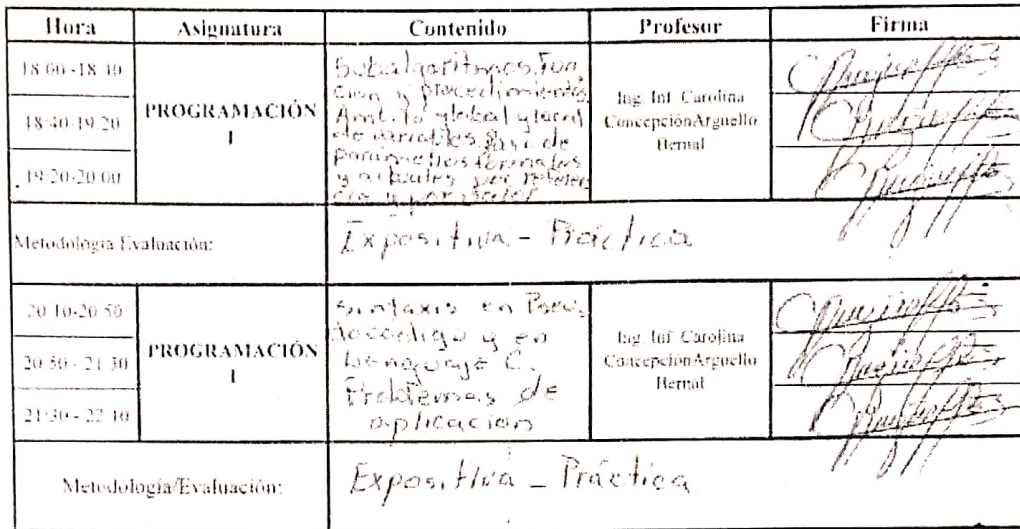 Hora Asignatura Contenido Profesor Firma
18:00 -18:40
18:40-19:20
19:20-20:00
PROGRAMACIÓN
I
Subalgoritmos, Fun
ción y procedimientos.
Ámbito global y local
de variables. Pasaje de
parámetros formales
y actuales por referen
cia y por valor
Ing. Inf. Carolina
ConcepciónArguello
Bernal
Metodología Evaluación:
Expositiva - Práctica
20:10-20:50
20:50 - 21:30
21:30 - 22:10
PROGRAMACIÓN
I
Sintaxis en Pseu
docodigo y en
Lenguaje C.
Problemas de
aplicación
Ing. Inf. Carolina
ConcepciónArguello
Bernal
Metodología/Evaluación:
Expositiva - Práctica